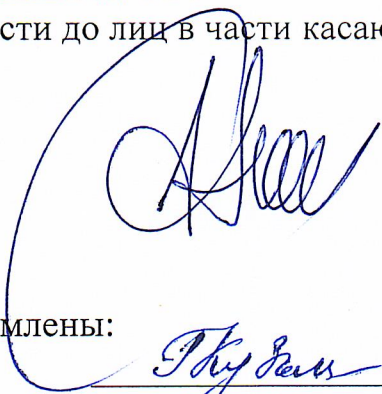 сти до лиц в части касаю
млены: